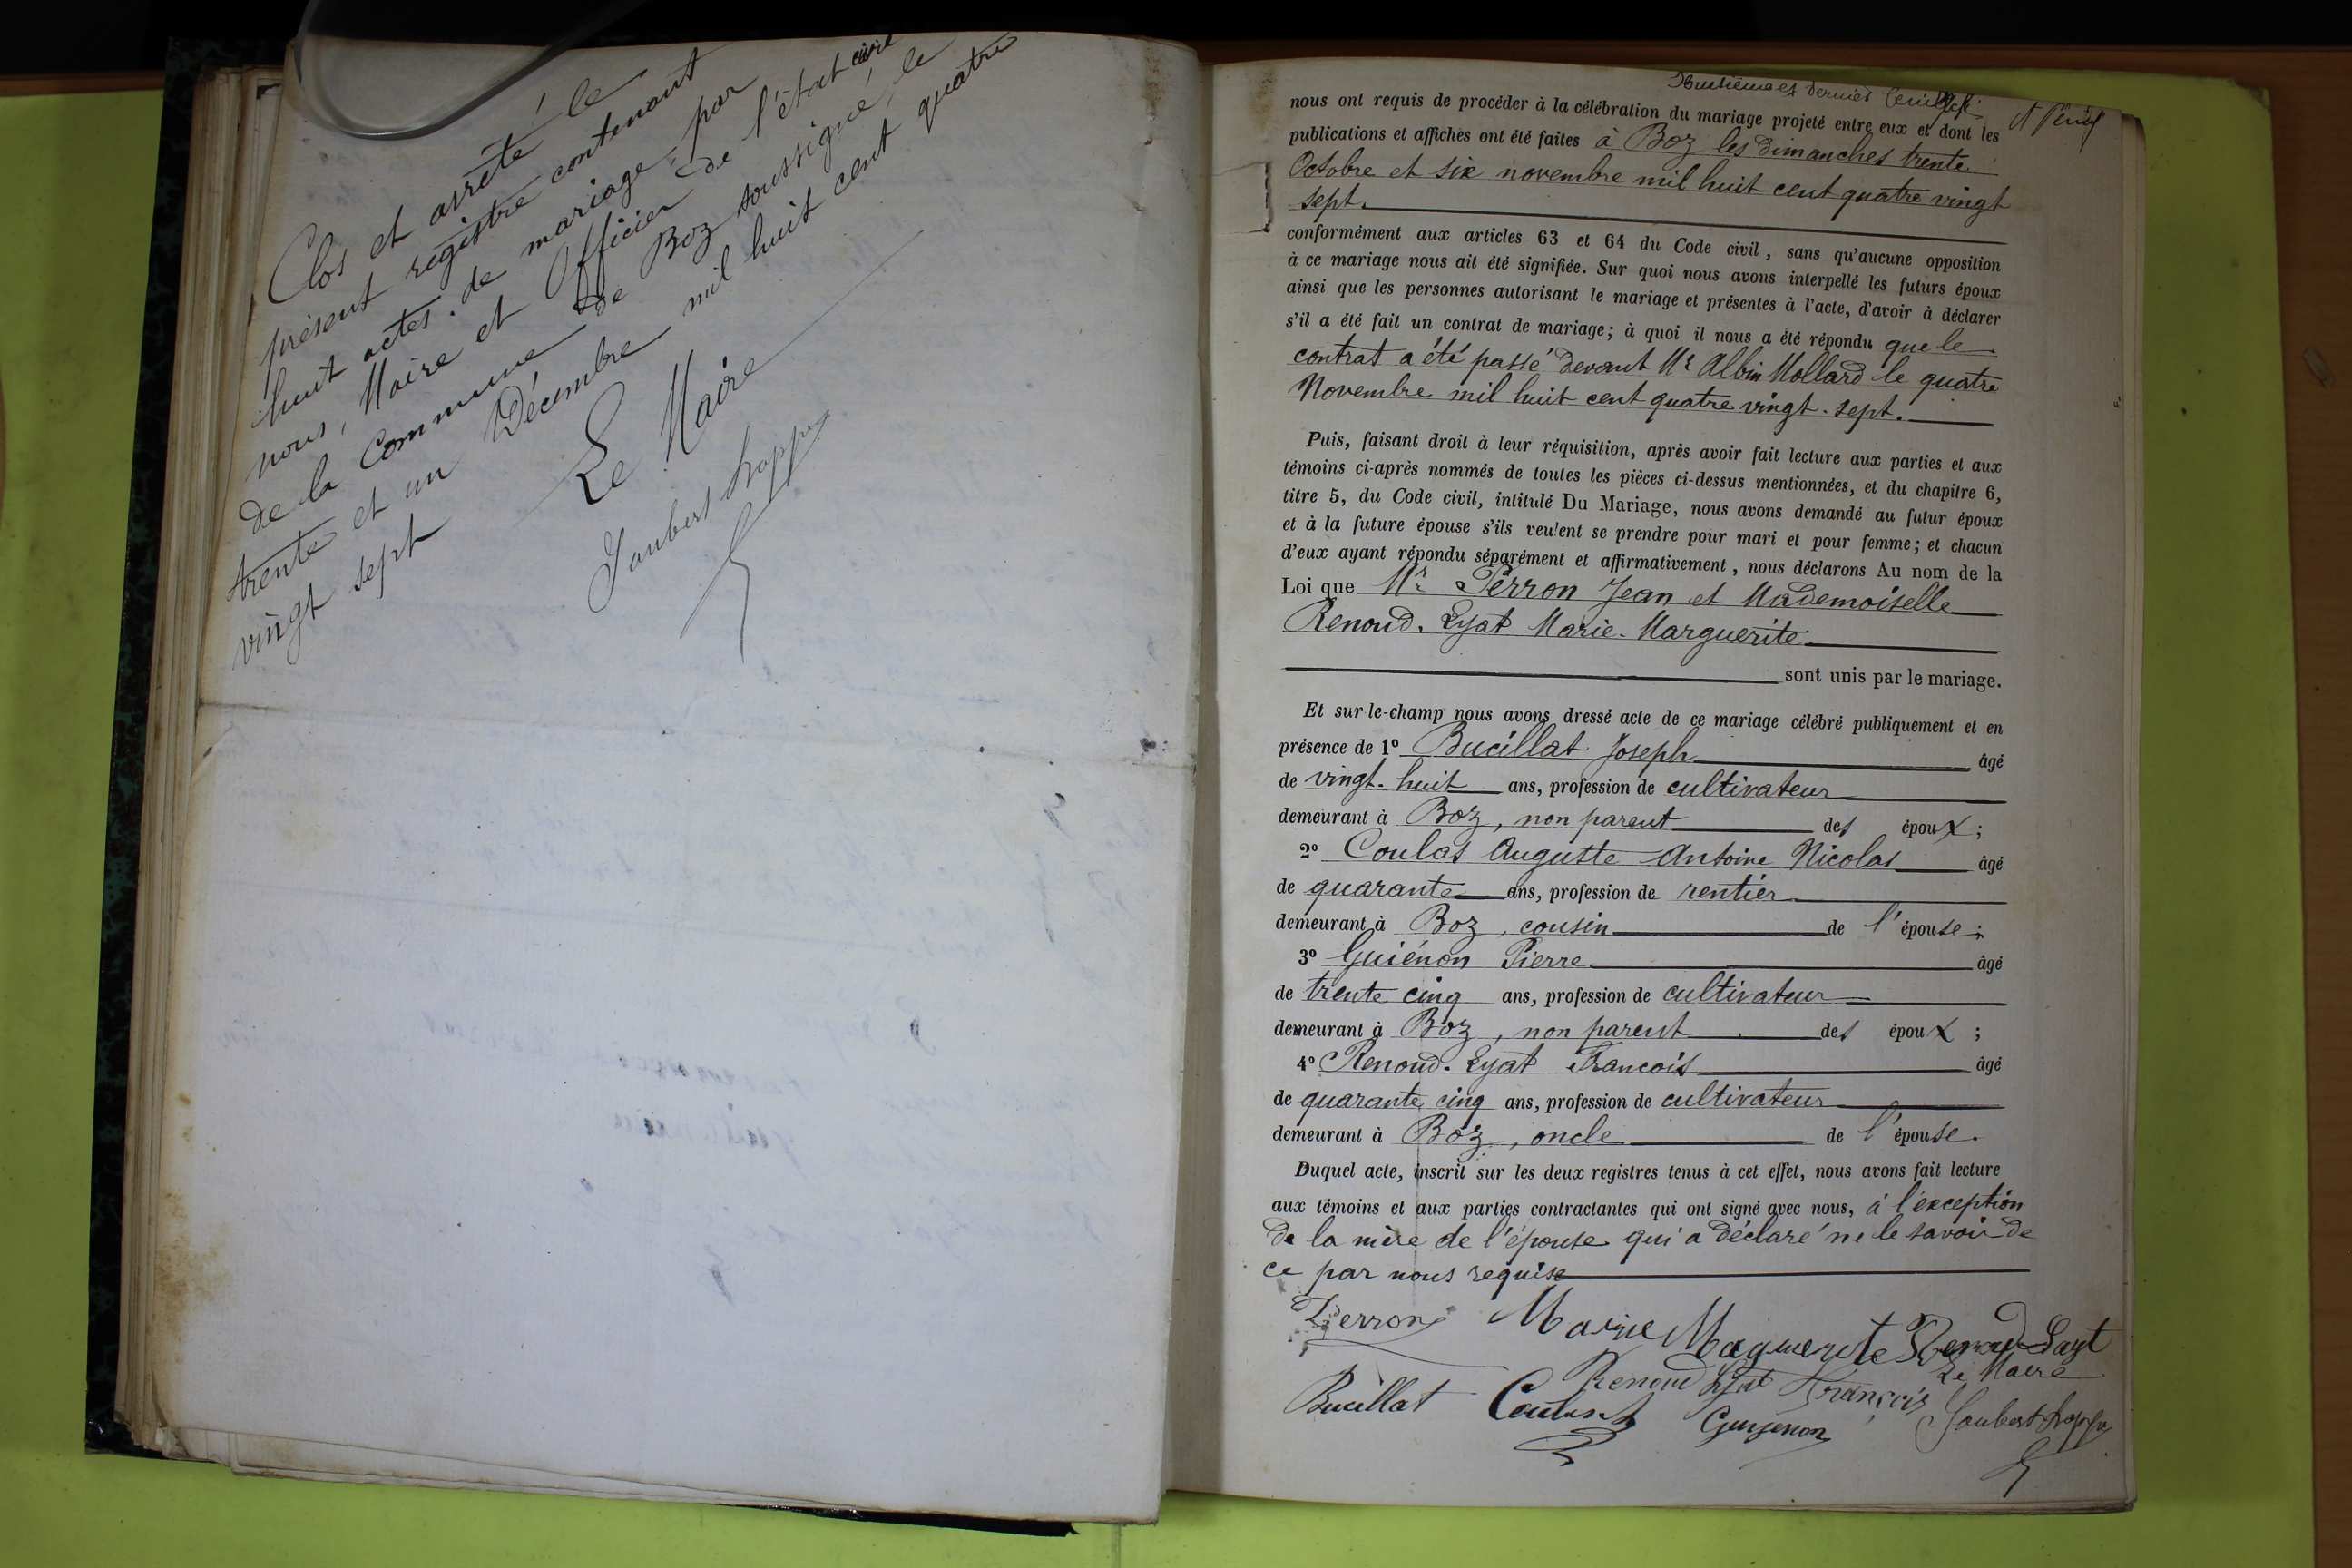 Clos et arrêté le
présent registre contenant
huit actes de mariage, par
nous, Maire et Officier de l'état civil
de la Commune de Boz soussigné, le
trente et un Décembre mil huit cent quatre
vingt sept
Le Maire
Joubert
et dernier
nous ont requis de procéder à la célébration du mariage projeté entre eux et dont les
publications et affiches ont été faites à Boz les dimanches trente
Octobre et six novembre mil huit cent quatre vingt
sept.
conformément aux articles 63 et 64 du Code civil, sans qu'aucune opposition
à ce mariage nous ait été signifiée. Sur quoi nous avons interpellé les futurs époux
ainsi que les personnes autorisant le mariage et présentes à l'acte, d'avoir à déclarer
s'il a été fait un contrat de mariage; à quoi il nous a été répondu que le
contrat a été passé devant Me Albin Mollard le quatre
Novembre mil huit cent quatre vingt-sept.
Puis, faisant droit à leur réquisition, après avoir fait lecture aux parties et aux
témoins ci-après nommés de toutes les pièces ci-dessus mentionnées, et du chapitre 6,
titre 5, du Code civil, intitulé Du Mariage, nous avons demandé au futur époux
et à la future épouse s'ils veulent se prendre pour mari et pour femme; et chacun
d'eux ayant répondu séparément et affirmativement, nous déclarons Au nom de la
Loi que Mr Perron Jean et Mademoiselle
Renoud-Lyat Marie-Marguerite
sont unis par le mariage.
Et sur-le-champ nous avons dressé acte de ce mariage célébré publiquement et en
présence de 1º Bucillat Joseph âgé
de vingt-huit ans, profession de cultivateur
demeurant à Boz, non parent des époux;
2º Coulas Auguste Antoine Nicolas âgé
de quarante ans, profession de rentier
demeurant à Boz, cousin de l'épouse;
3º Guiénon Pierre âgé
de trente cinq ans, profession de cultivateur
demeurant à Boz, non parent des époux;
4º Renoud-Lyat Francois âgé
de quarante cinq ans, profession de cultivateur
demeurant à Boz, oncle de l'épouse.
Duquel acte, inscrit sur les deux registres tenus à cet effet, nous avons fait lecture
aux témoins et aux parties contractantes qui ont signé avec nous, à l'exception
de la mère de l'épouse qui a déclaré ne le savoir de
ce par nous requise
Perron Marie Maguerite Renoud Layt
Renoud Lyat François Le Maire
Bucillat Coulas Guyenon Joubert